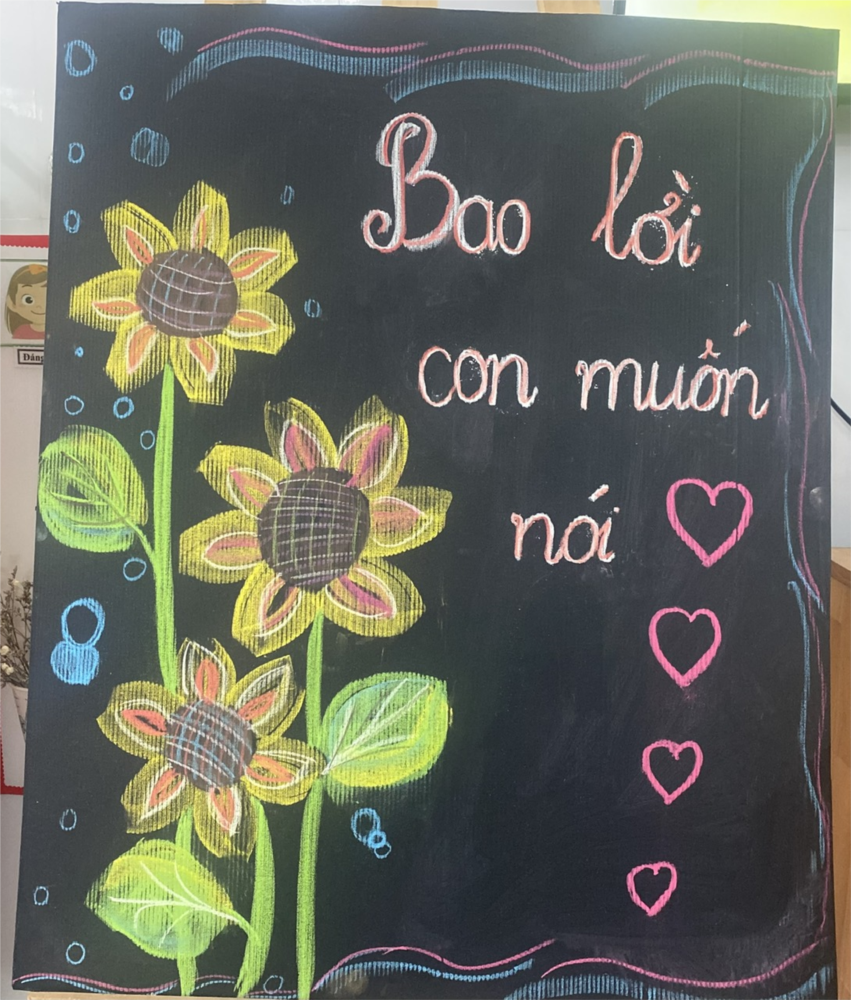 Bao lời
con muốn
nói
Đáng